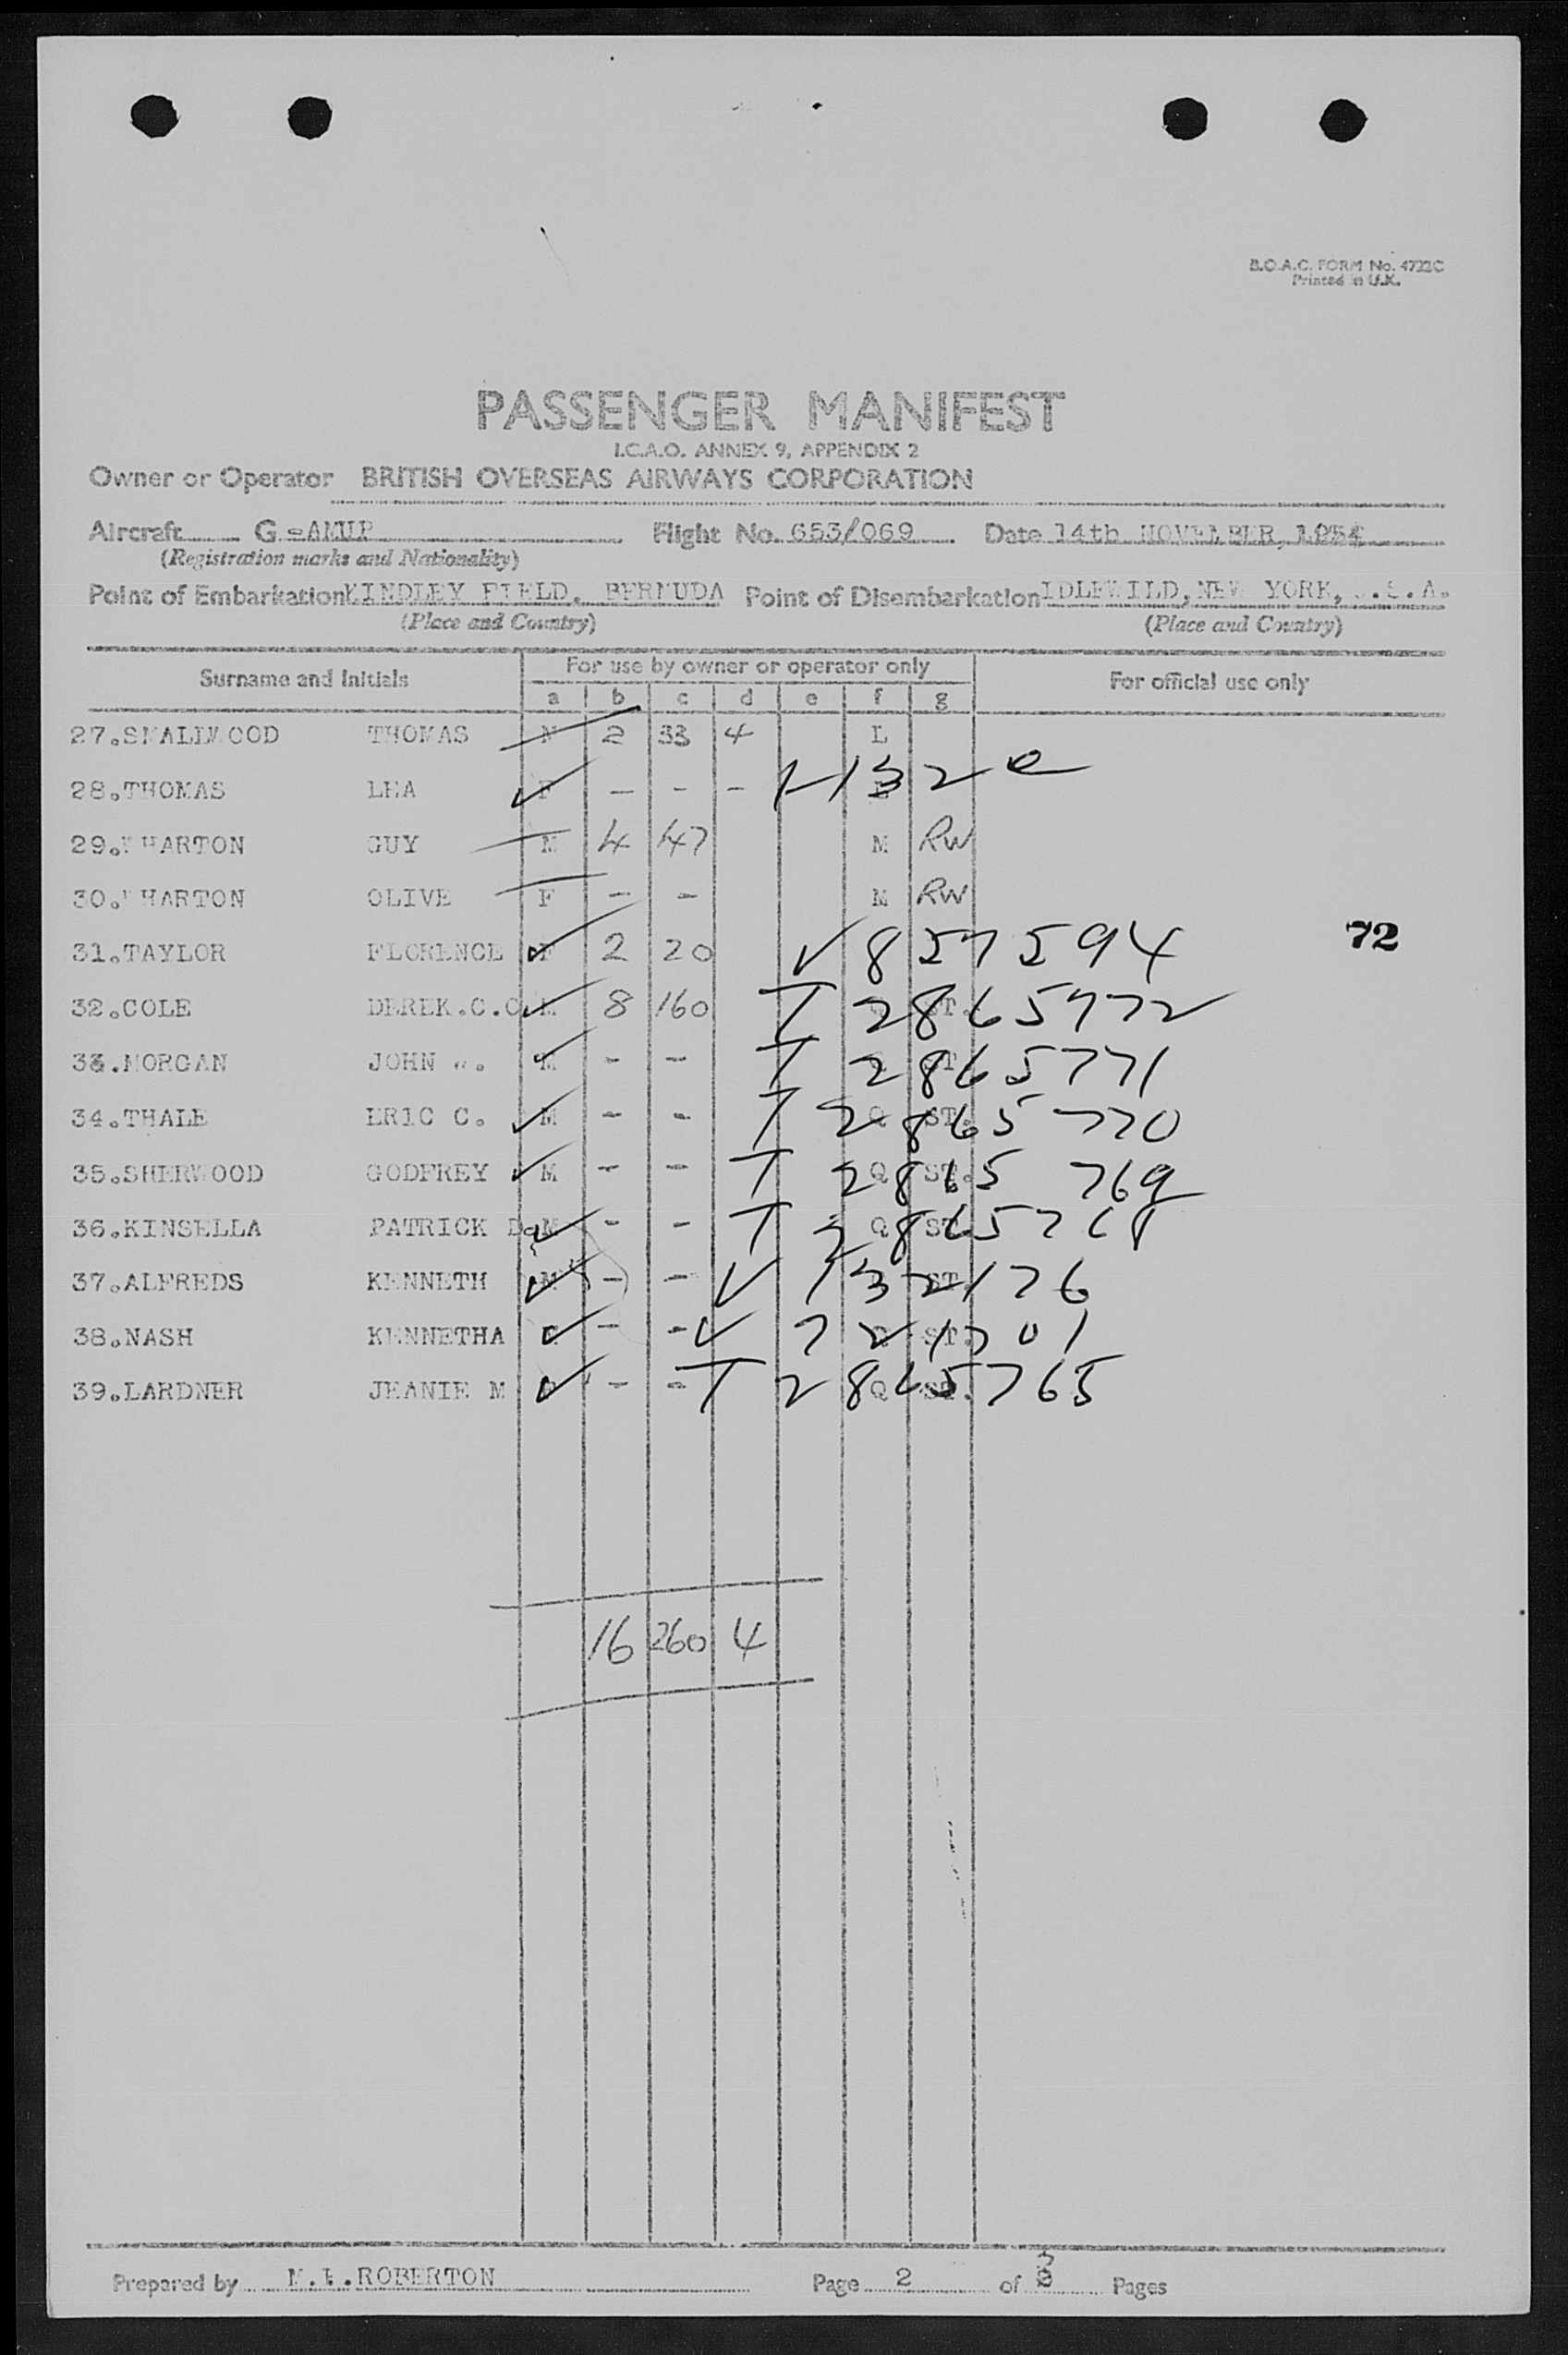 B.O.A.C. FORM No. 4722C
Printed in U.K.
PASSENGER MANIFEST
I.C.A.O. ANNEX 9, APPENDIX 2
Owner or Operator BRITISH OVERSEAS AIRWAYS CORPORATION
Aircraft G-AMUP Flight No. 653/069 Date 14th NOVEMBER, 1954
(Registration marks and Nationality)
Point of Embarkation KINDLEY FIELD, BERMUDA Point of Disembarkation IDLEWILD, NEW YORK, U.S.A.
(Place and Country) (Place and Country)
Surname and Initials For use by owner or operator only For official use only
a b c d e f g
27.SMALLWOOD THOMAS M 2 33 4 L
28.THOMAS LEA F - - - 1-132 e
29.WHARTON GUY M 4 47 M RW
30.WHARTON OLIVE F - - M RW
31.TAYLOR FLORENCE F 2 20 V 857594 72
32.COLE DEREK.C.C. M 8 160 T 2865772 ST.
33.MORGAN JOHN W. M - - T 2865771 ST.
34.THALE ERIC C. M - - T 2865770 Q ST.
35.SHERWOOD GODFREY M - - T 2865769 Q ST.
36.KINSELLA PATRICK D. M - - T 2865768 Q ST.
37.ALFREDS KENNETH M - - V 132176 ST.
38.NASH KENNETHA - - V 721701 ST.
39.LARDNER JEANIE M - - T 2865765 Q ST.
16 260 4
Prepared by ROBERTON Page 2 of 3 Pages